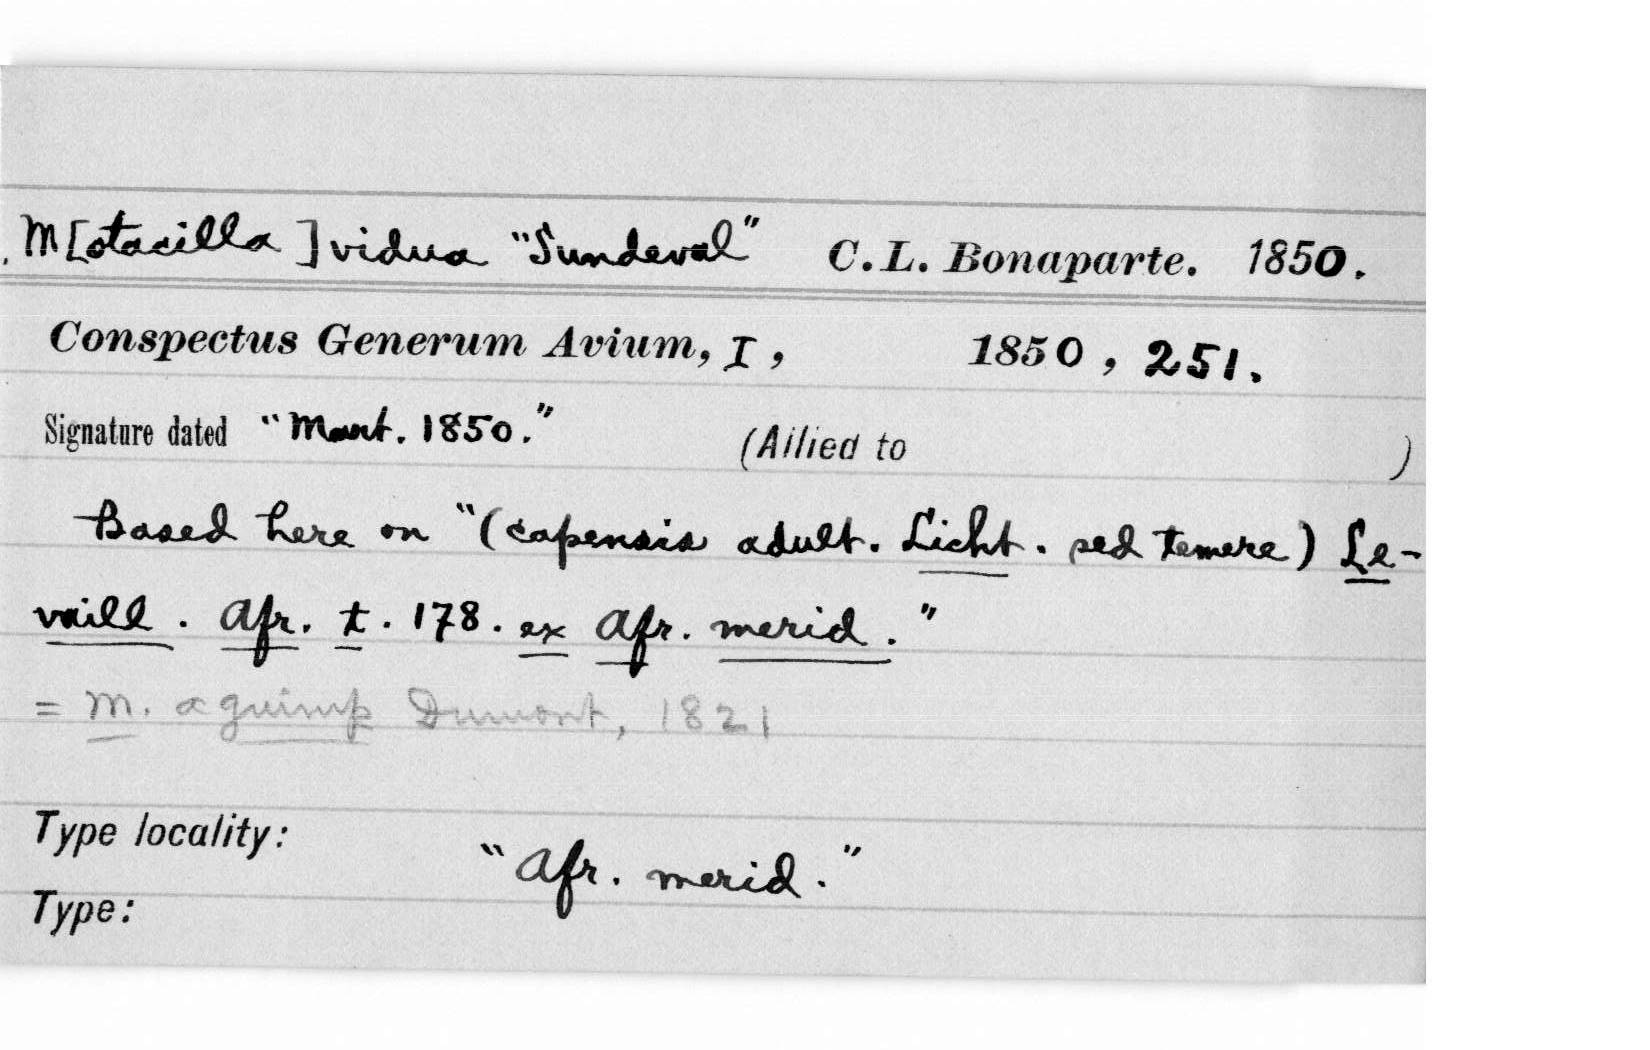 M[otacilla] vidua "Sundeval" C. L. Bonaparte. 1850.
Conspectus Generum Avium, I, 1850, 251.
Signature dated "Mart. 1850." (Allied to )
Based here on "(capensis adult. Licht. sed temere) Le-
vaill. Afr. t. 178. ex Afr. merid."
= M. aguimp Dumont, 1821
Type locality:
"Afr. merid."
Type: